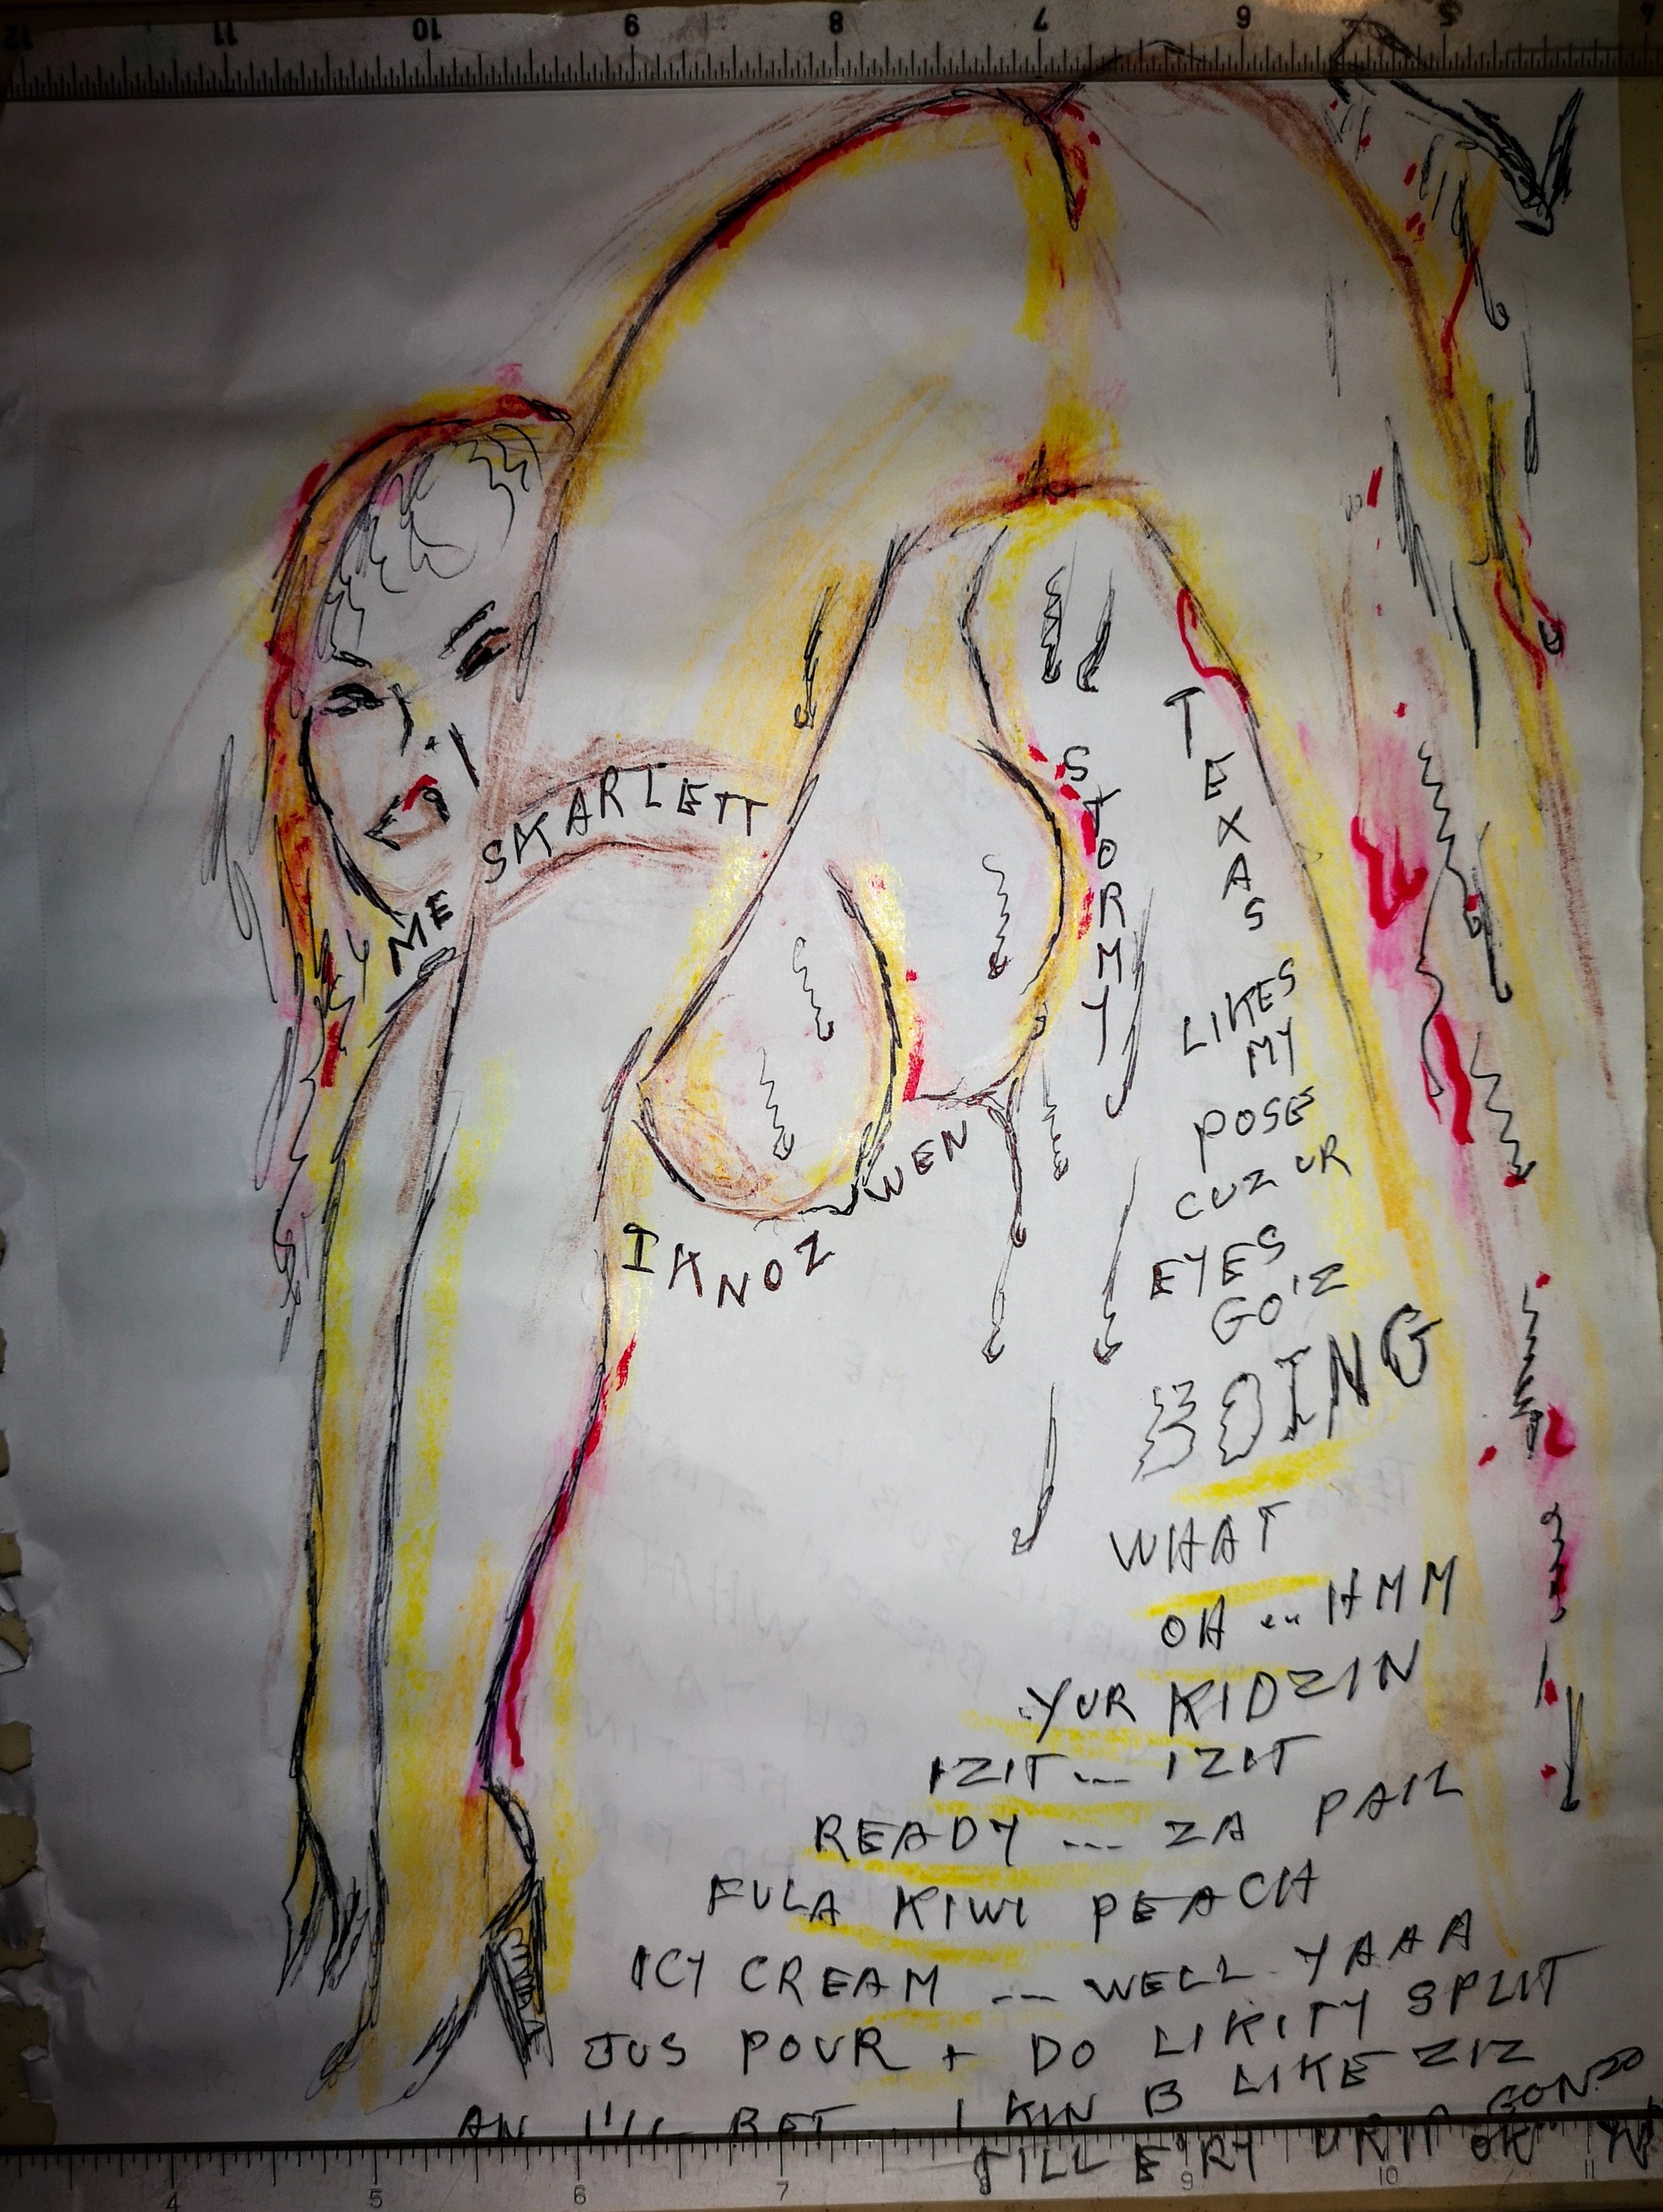 12 11 10 9 8 7 6 5 4
ME SKARLETT
I KNOZ WEN
STORMY
TEXAS
LIKES
MY
POSE
CUZ UR
EYES
GO'Z
BOING
WHAT
OH ... HMM
YUR KIDZIN
IZIT --- IZIT
READY --- ZA PAIL
FULA KIWI PEACH
ICY CREAM --- WELL YAAA
JUS POUR + DO LIKITY SPLIT
AN I'LL BET I KIN B LIKE ZIZ
TILL E'RY
4 5 6 7 8 9 10 11